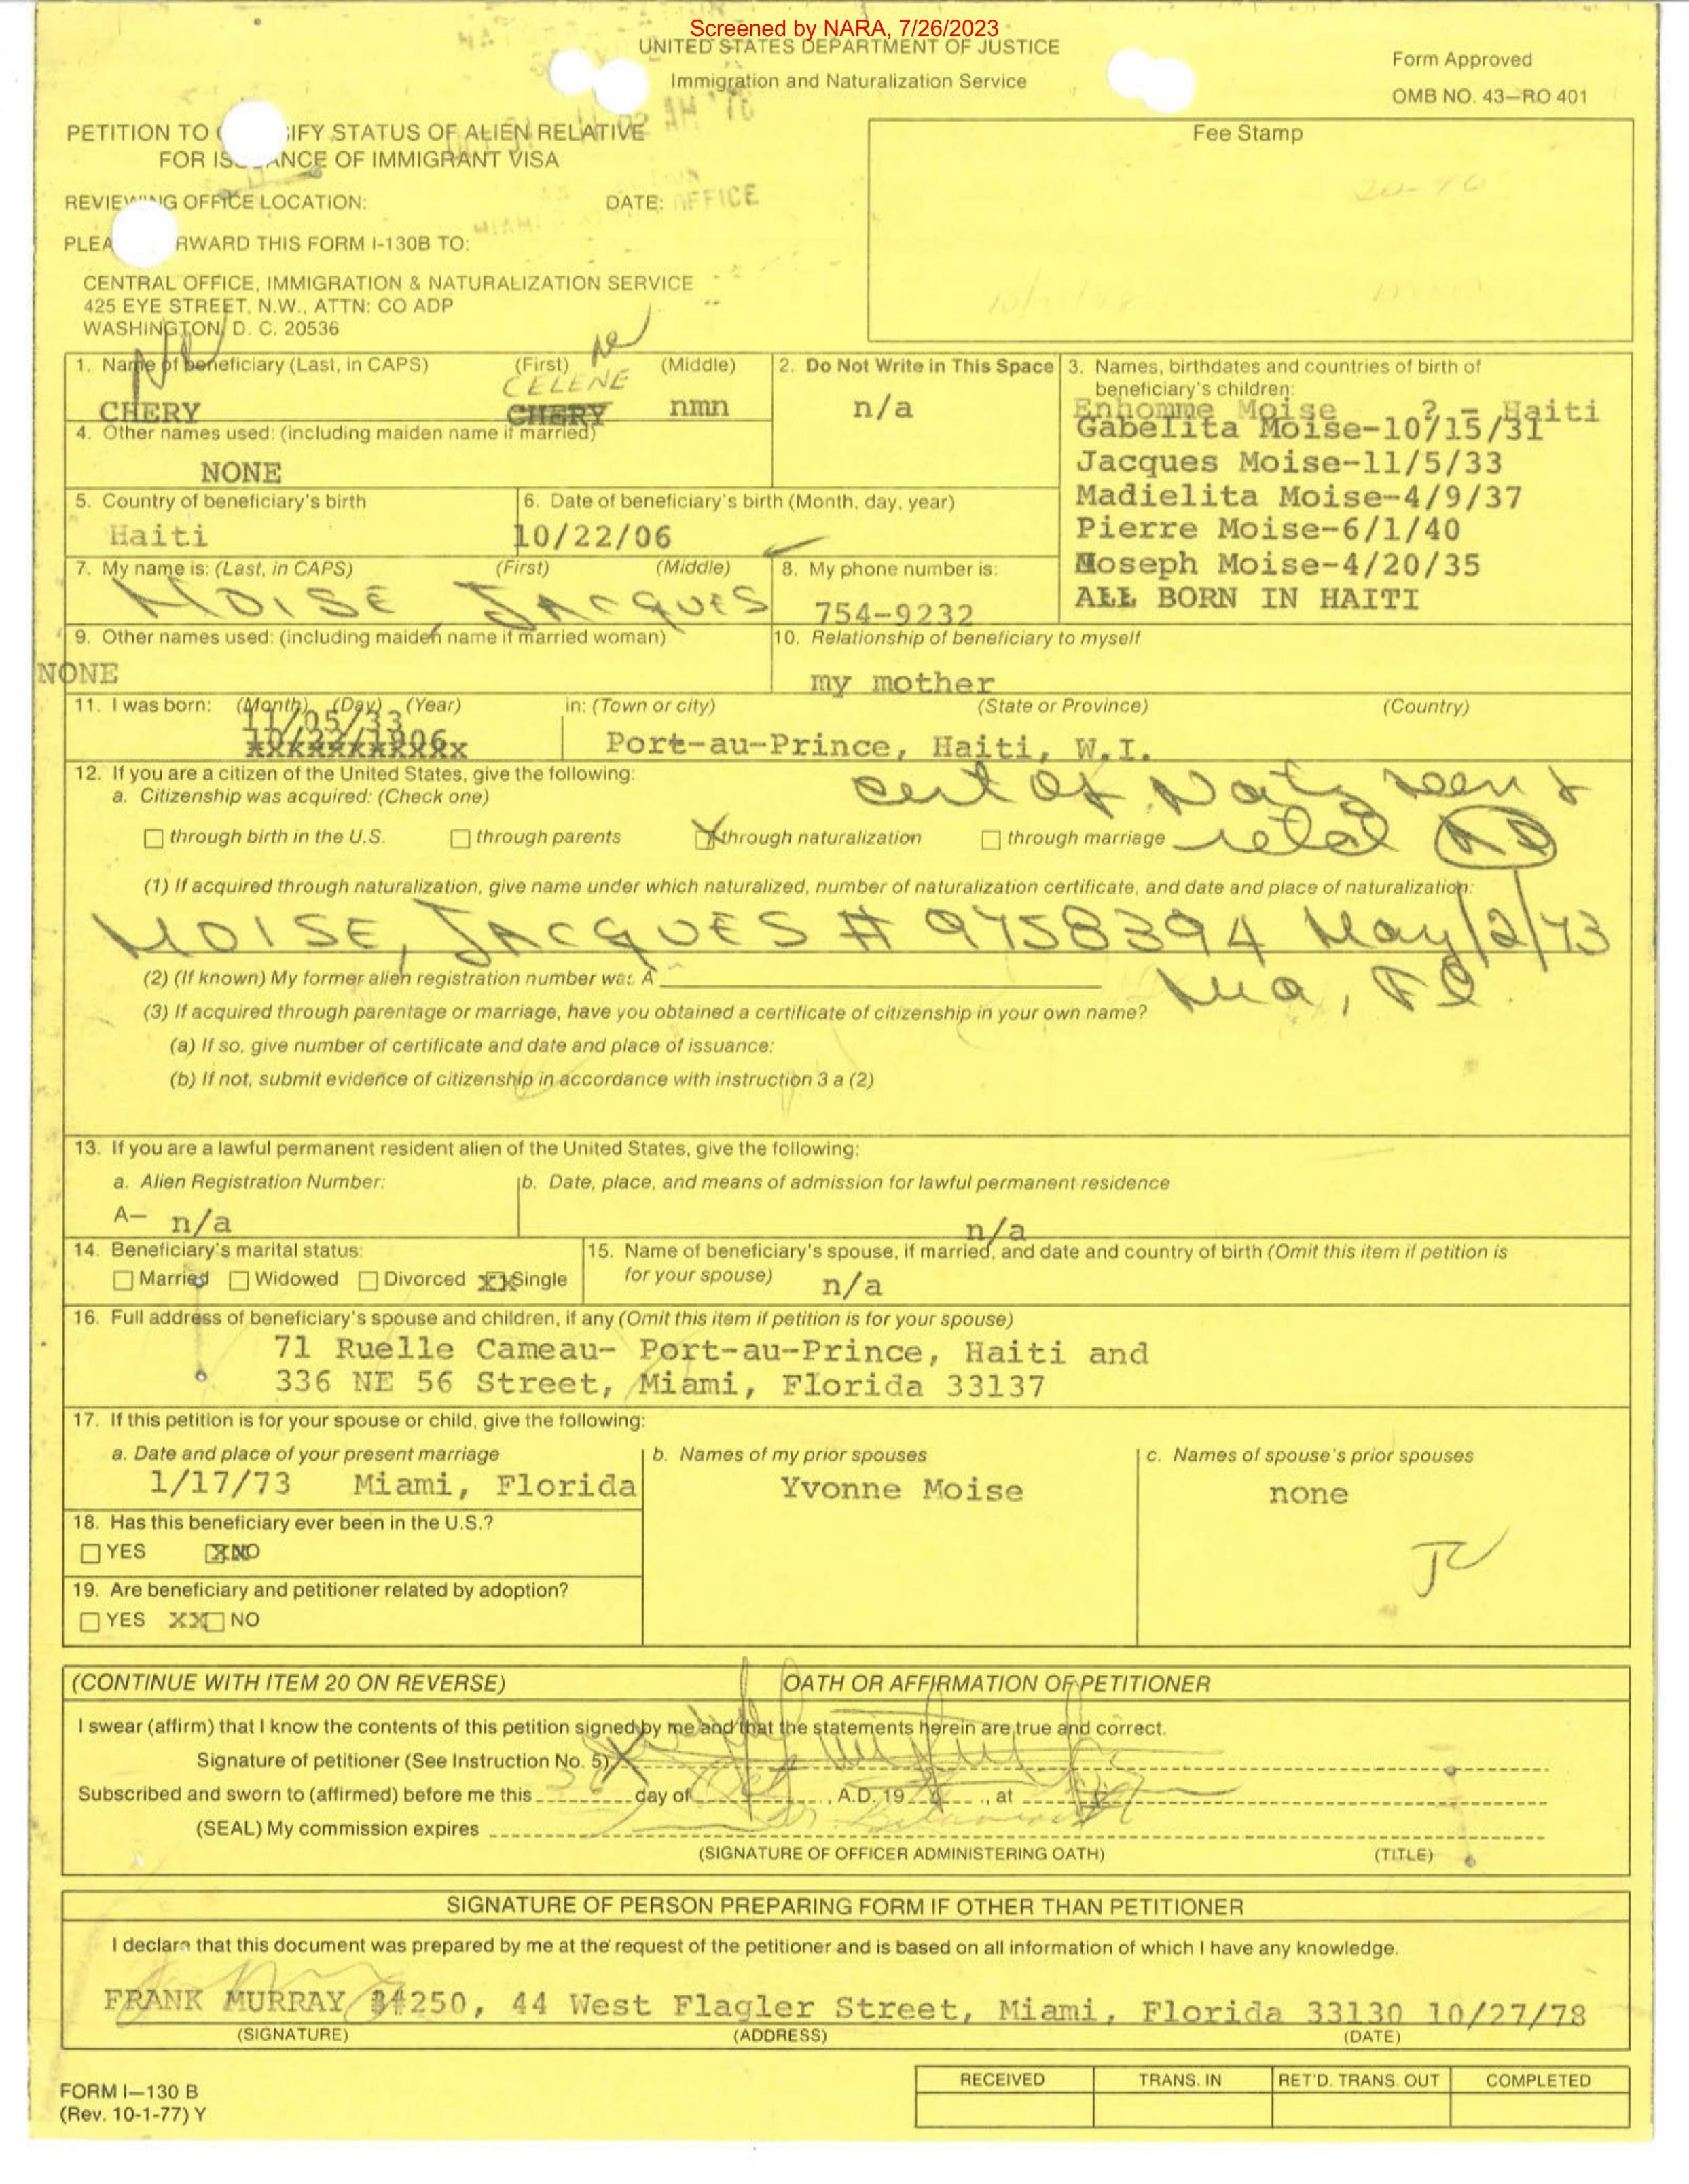 Screened by NARA, 7/26/2023
UNITED STATES DEPARTMENT OF JUSTICE
Immigration and Naturalization Service
Form Approved
OMB NO. 43—RO 401
PETITION TO IFY STATUS OF ALIEN RELATIVE
FOR IS ANCE OF IMMIGRANT VISA
Fee Stamp
REVIEWING OFFICE LOCATION: DATE: OFFICE
PLEA RWARD THIS FORM I-130B TO:
CENTRAL OFFICE, IMMIGRATION & NATURALIZATION SERVICE
425 EYE STREET, N.W., ATTN: CO ADP
WASHINGTON, D. C. 20536
1. Name of beneficiary (Last, in CAPS) (First) (Middle)
CELENE
CHERY CHERY nmn
2. Do Not Write in This Space
n/a
3. Names, birthdates and countries of birth of
beneficiary's children:
Enhomme Moise ? - Haiti
Gabelita Moise-10/15/31
Jacques Moise-11/5/33
Madielita Moise-4/9/37
Pierre Moise-6/1/40
Moseph Moise-4/20/35
ALL BORN IN HAITI
4. Other names used: (including maiden name if married)
NONE
5. Country of beneficiary's birth
Haiti
6. Date of beneficiary's birth (Month, day, year)
10/22/06
7. My name is: (Last, in CAPS) (First) (Middle)
MOISE JACQUES
8. My phone number is:
754-9232
9. Other names used: (including maiden name if married woman)
NONE
10. Relationship of beneficiary to myself
my mother
11. I was born: (Month) (Day) (Year) in: (Town or city) (State or Province) (Country)
11/05/33
10/22/1906
Port-au-Prince, Haiti, W.I.
12. If you are a citizen of the United States, give the following:
a. Citizenship was acquired: (Check one)
cert of Natz seen &
☐ through birth in the U.S. ☐ through parents ☒ through naturalization ☐ through marriage retd
(1) If acquired through naturalization, give name under which naturalized, number of naturalization certificate, and date and place of naturalization:
MOISE, JACQUES # 9758394 May/2/73
(2) (If known) My former alien registration number was A
Mia, Fl
(3) If acquired through parentage or marriage, have you obtained a certificate of citizenship in your own name?
(a) If so, give number of certificate and date and place of issuance:
(b) If not, submit evidence of citizenship in accordance with instruction 3 a (2)
13. If you are a lawful permanent resident alien of the United States, give the following:
a. Alien Registration Number: b. Date, place, and means of admission for lawful permanent residence
A— n/a n/a
14. Beneficiary's marital status:
☐ Married ☐ Widowed ☐ Divorced ☒ Single
15. Name of beneficiary's spouse, if married, and date and country of birth (Omit this item if petition is
for your spouse) n/a
16. Full address of beneficiary's spouse and children, if any (Omit this item if petition is for your spouse)
71 Ruelle Cameau- Port-au-Prince, Haiti and
336 NE 56 Street, Miami, Florida 33137
17. If this petition is for your spouse or child, give the following:
a. Date and place of your present marriage b. Names of my prior spouses c. Names of spouse's prior spouses
1/17/73 Miami, Florida Yvonne Moise none
18. Has this beneficiary ever been in the U.S.?
☐ YES ☒ NO
19. Are beneficiary and petitioner related by adoption?
☐ YES XX☐ NO
(CONTINUE WITH ITEM 20 ON REVERSE) OATH OR AFFIRMATION OF PETITIONER
I swear (affirm) that I know the contents of this petition signed by me and that the statements herein are true and correct.
Signature of petitioner (See Instruction No. 5)
Subscribed and sworn to (affirmed) before me this day of , A.D. 19 , at
(SEAL) My commission expires
(SIGNATURE OF OFFICER ADMINISTERING OATH) (TITLE)
SIGNATURE OF PERSON PREPARING FORM IF OTHER THAN PETITIONER
I declare that this document was prepared by me at the request of the petitioner and is based on all information of which I have any knowledge.
FRANK MURRAY #250, 44 West Flagler Street, Miami, Florida 33130 10/27/78
(SIGNATURE) (ADDRESS) (DATE)
FORM I—130 B
(Rev. 10-1-77) Y
RECEIVED TRANS. IN RET'D. TRANS. OUT COMPLETED